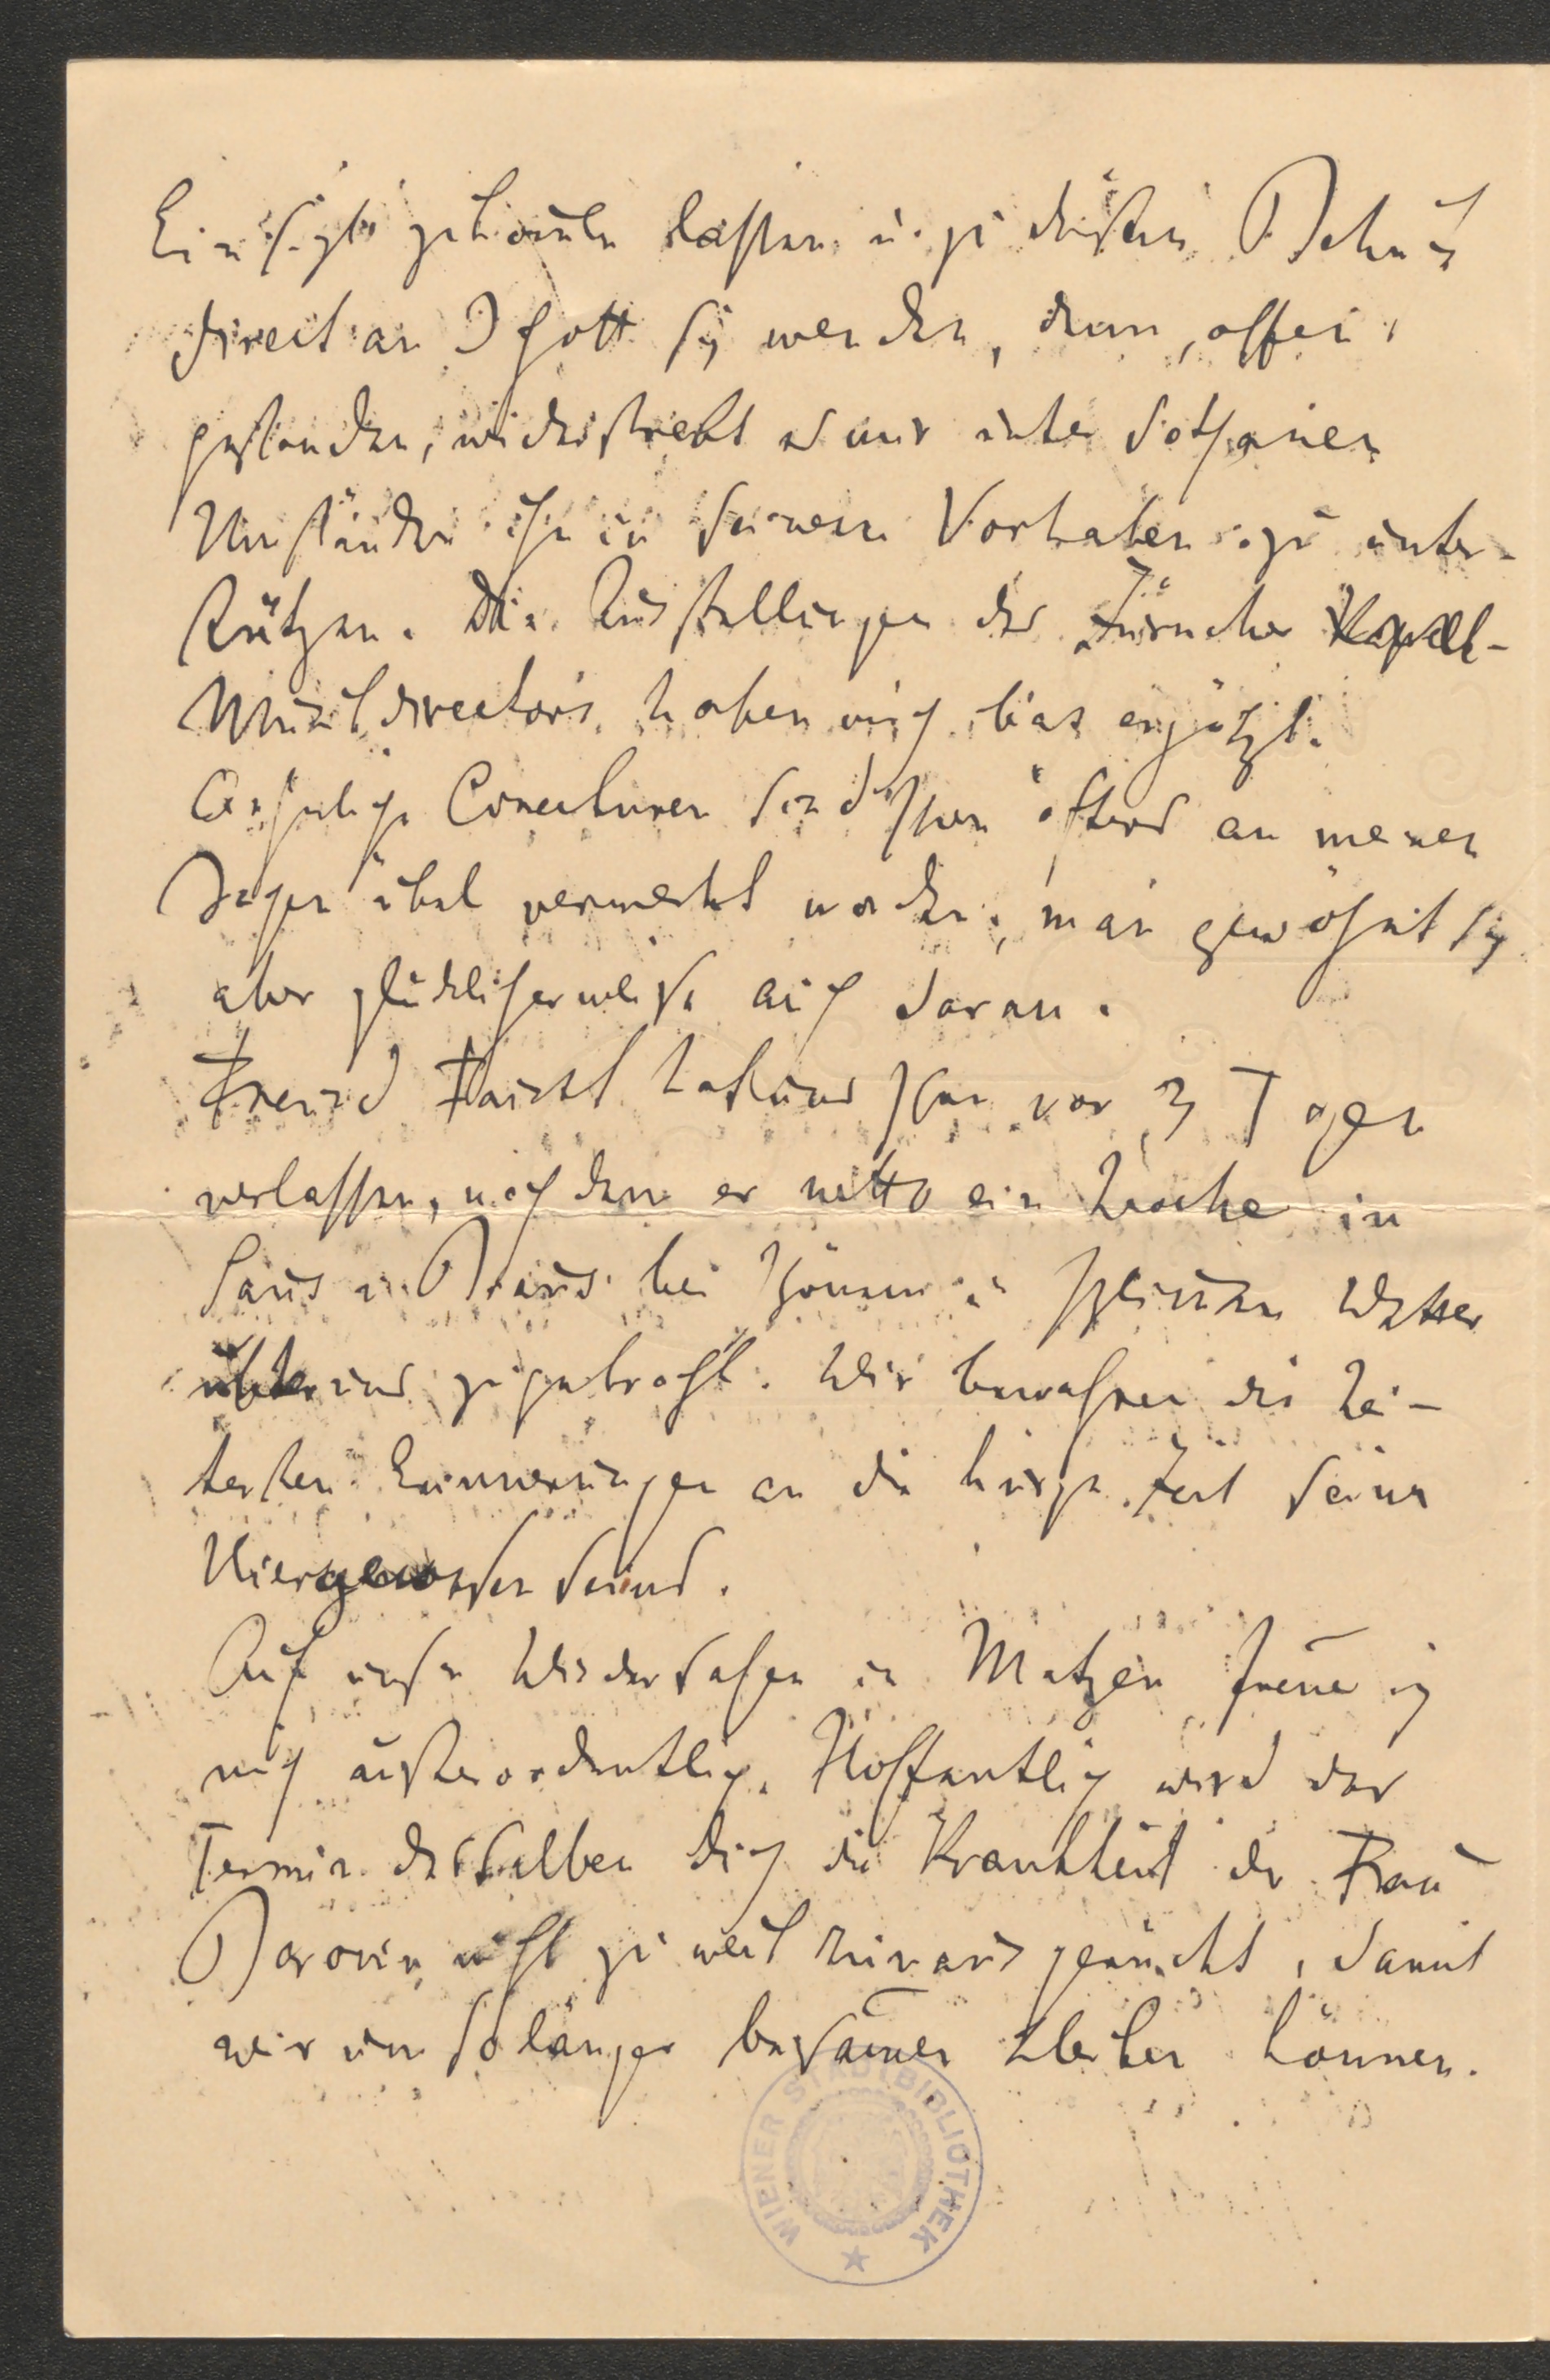 Einsicht gebieten lassen u. zu diesem Behuf
direct an Schott sich wenden, denn, offen
gestanden, widerstrebt es mir unter sothanen
Umständen ihn in seinem Vorhaben zu unter-
stützen. Die Ausstellungen des Züricher Kapell-
Musikdirectors haben mich bas ergötzt.
Conjecturen sind schon öfters an meinen
Sachen übel vermerkt worden; man gewöhnt sich
aber glücklicherweise auch daran.
Freund Faisst hat uns schon vor 3 Tagen
verlassen, nachdem er netto eine Woche in
Saus u. Braus bei schönem u. schlechtem Wetter
mit uns zugebracht. Wir bewahren die hei-
tersten Erinnerungen an die kurze Zeit seines
Hiergewesenseins.
Auf unser Wiedersehen in Matzen freue ich
mich außerordentlich. Hoffentlich wird der
Termin desselben durch die Krankheit der Frau
Baronin nicht zu weit hinausgerückt, damit
wir um so länger beisammen bleiben können.
WIENER STADTBIBLIOTHEK